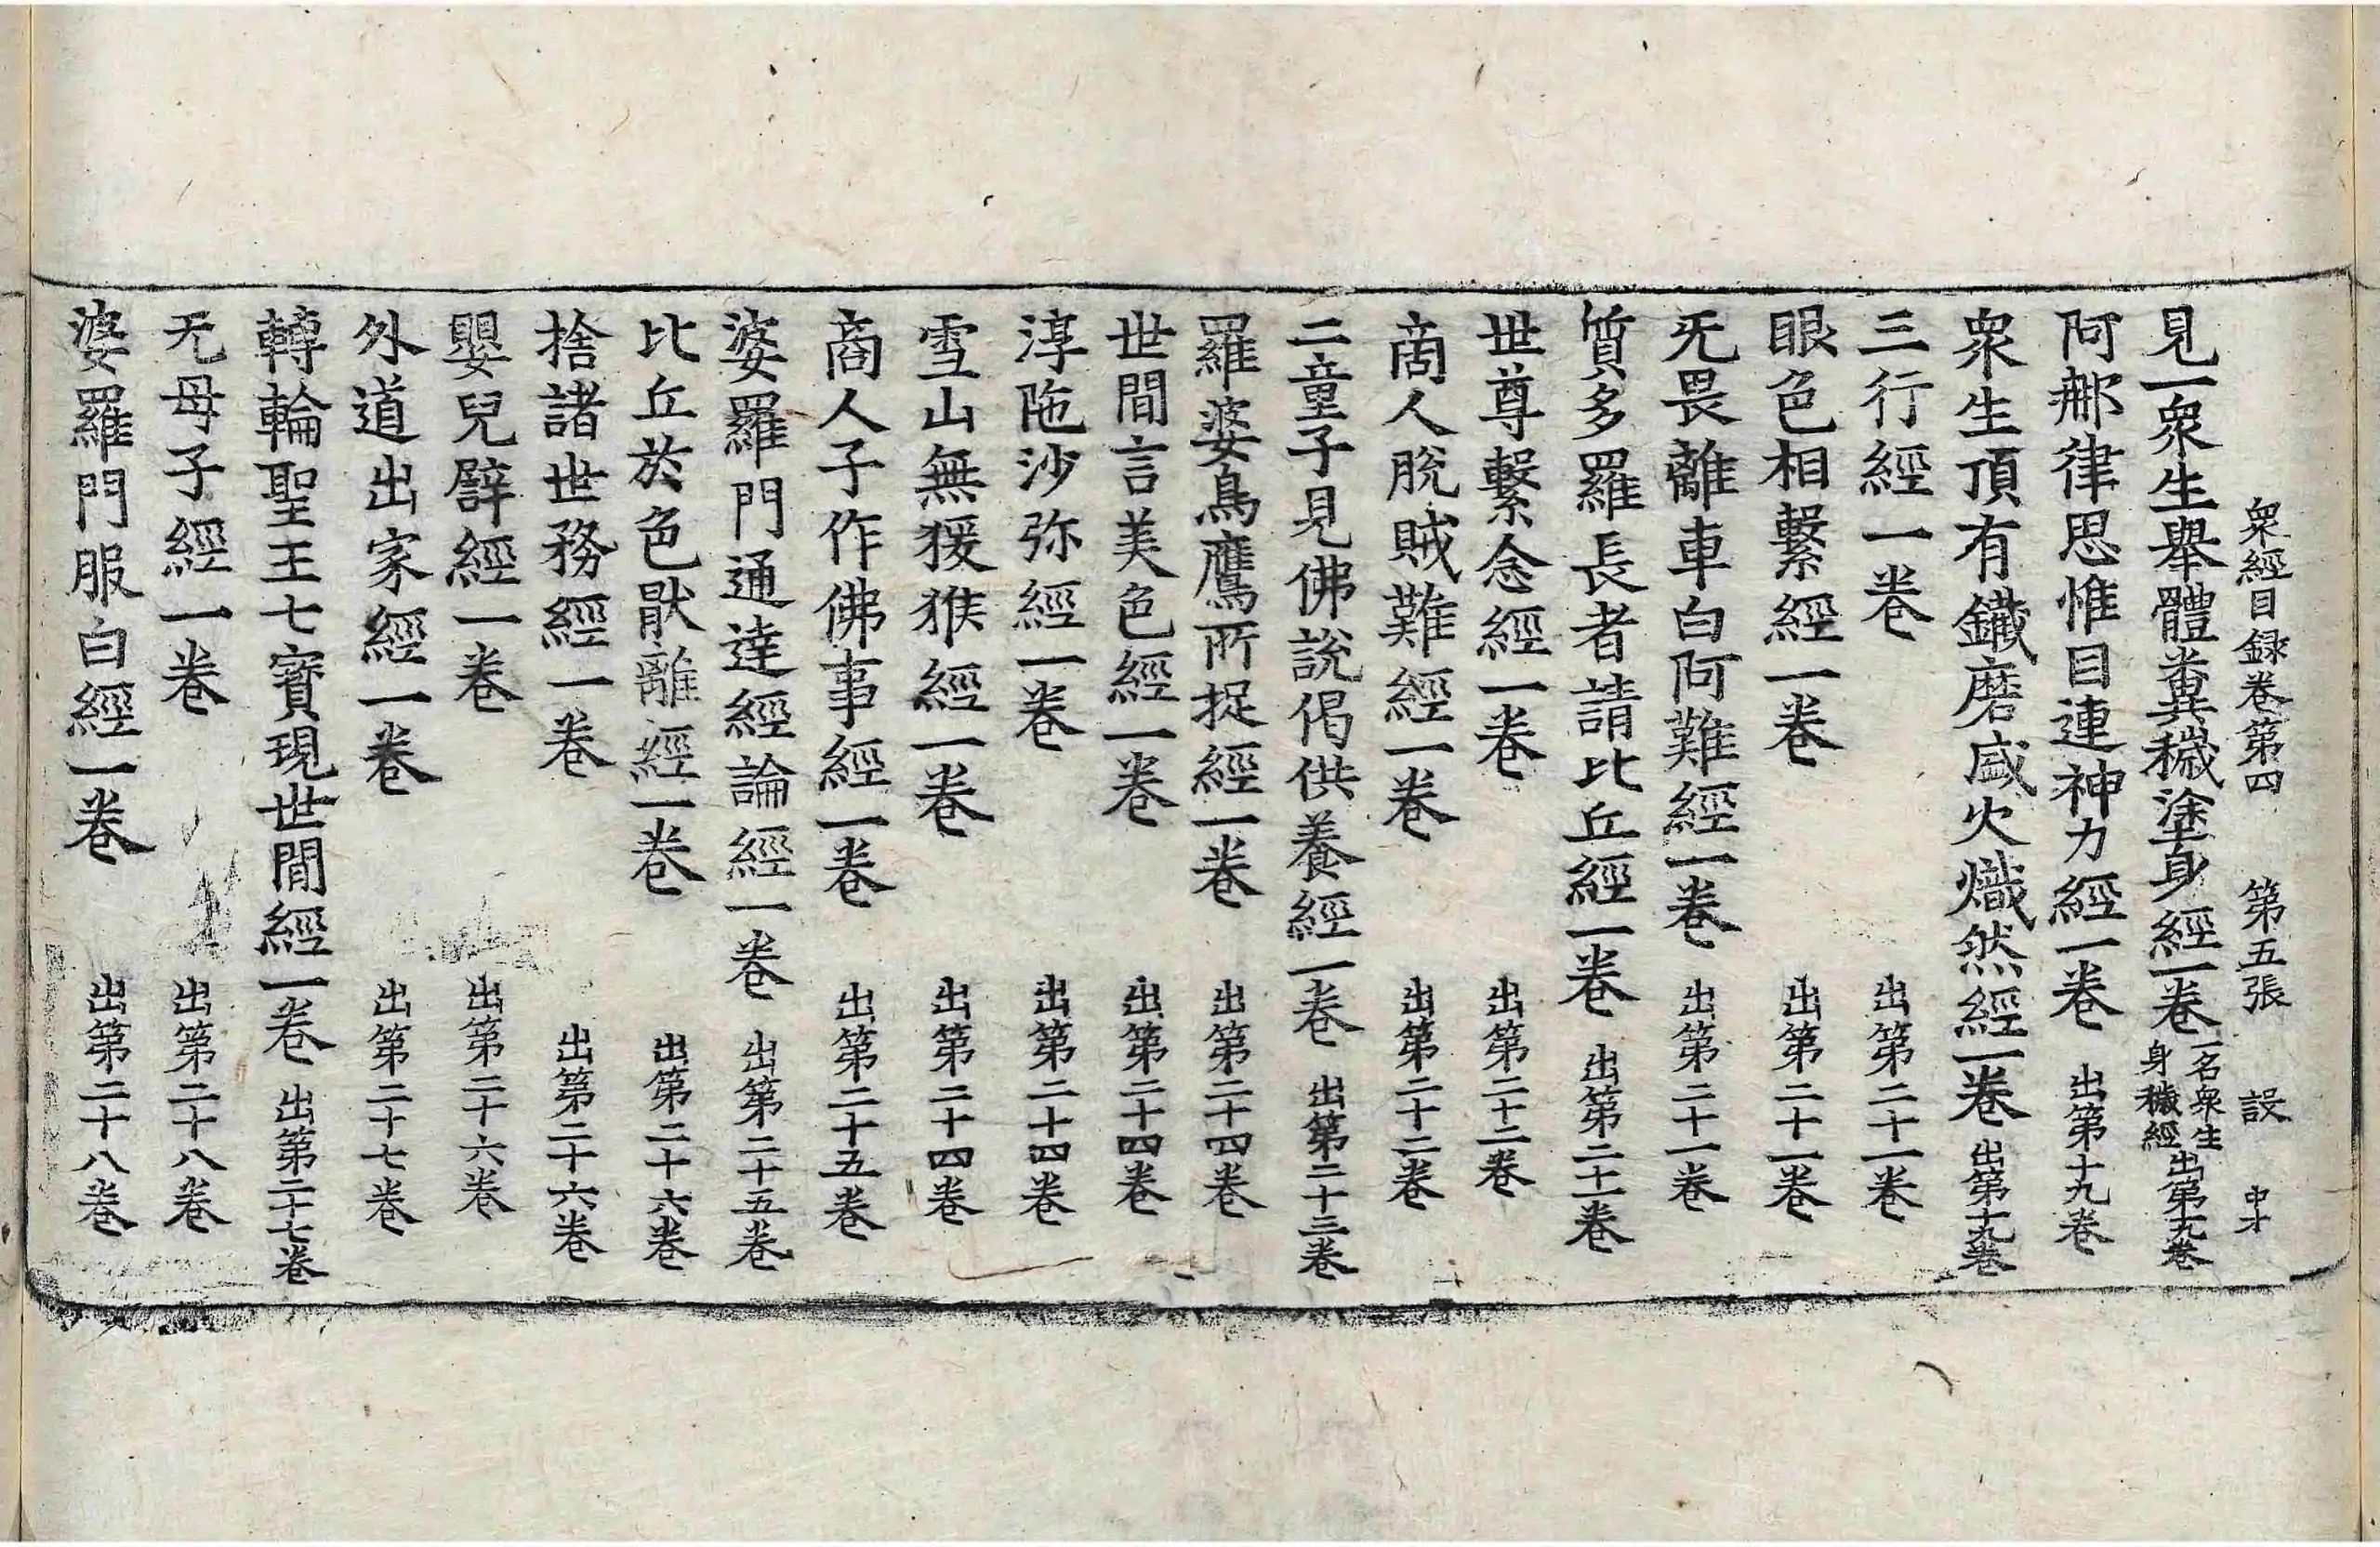 衆經目録卷第四　第五張　設　中才
見一衆生舉體糞穢塗身經一卷　一名衆生身穢經　出第十九卷
阿那律思惟目連神力經一卷　出第十九卷
衆生頂有鐵磨盛火熾然經一卷　出第十九卷
三行經一卷　出第二十一卷
眼色相繫經一卷　出第二十一卷
无畏離車白阿難經一卷　出第二十一卷
質多羅長者請比丘經一卷　出第二十一卷
世尊繫念經一卷　出第二十二卷
啇人脫賊難經一卷　出第二十二卷
二童子見佛說偈供養經一卷　出第二十三卷
羅婆鳥鷹所捉經一卷　出第二十四卷
世間言美色經一卷　出第二十四卷
淳陁沙弥經一卷　出第二十四卷
雪山無猨猴經一卷　出第二十四卷
商人子作佛事經一卷　出第二十五卷
婆羅門通達經論經一卷　出第二十五卷
比丘於色猒離經一卷　出第二十六卷
捨諸世務經一卷　出第二十六卷
嬰兒譬經一卷　出第二十六卷
外道出家經一卷　出第二十七卷
轉輪聖王七寶現世間經一卷　出第二十七卷
无母子經一卷　出第二十八卷
婆羅門服白經一卷　出第二十八卷